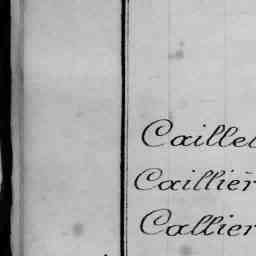 Caillet
Caillièr
Callier